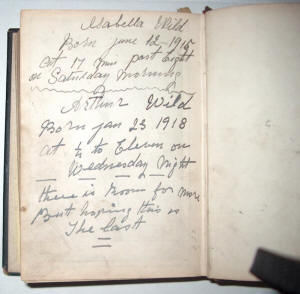 Isabella Wild
Born June 12, 1915
at 17 min past Eight
on Saturday Morning
Arthur Wild
Born Jan 23 1918
at ¼ to Eleven on
Wednesday Night
there is Room for more
But hoping this is
The last